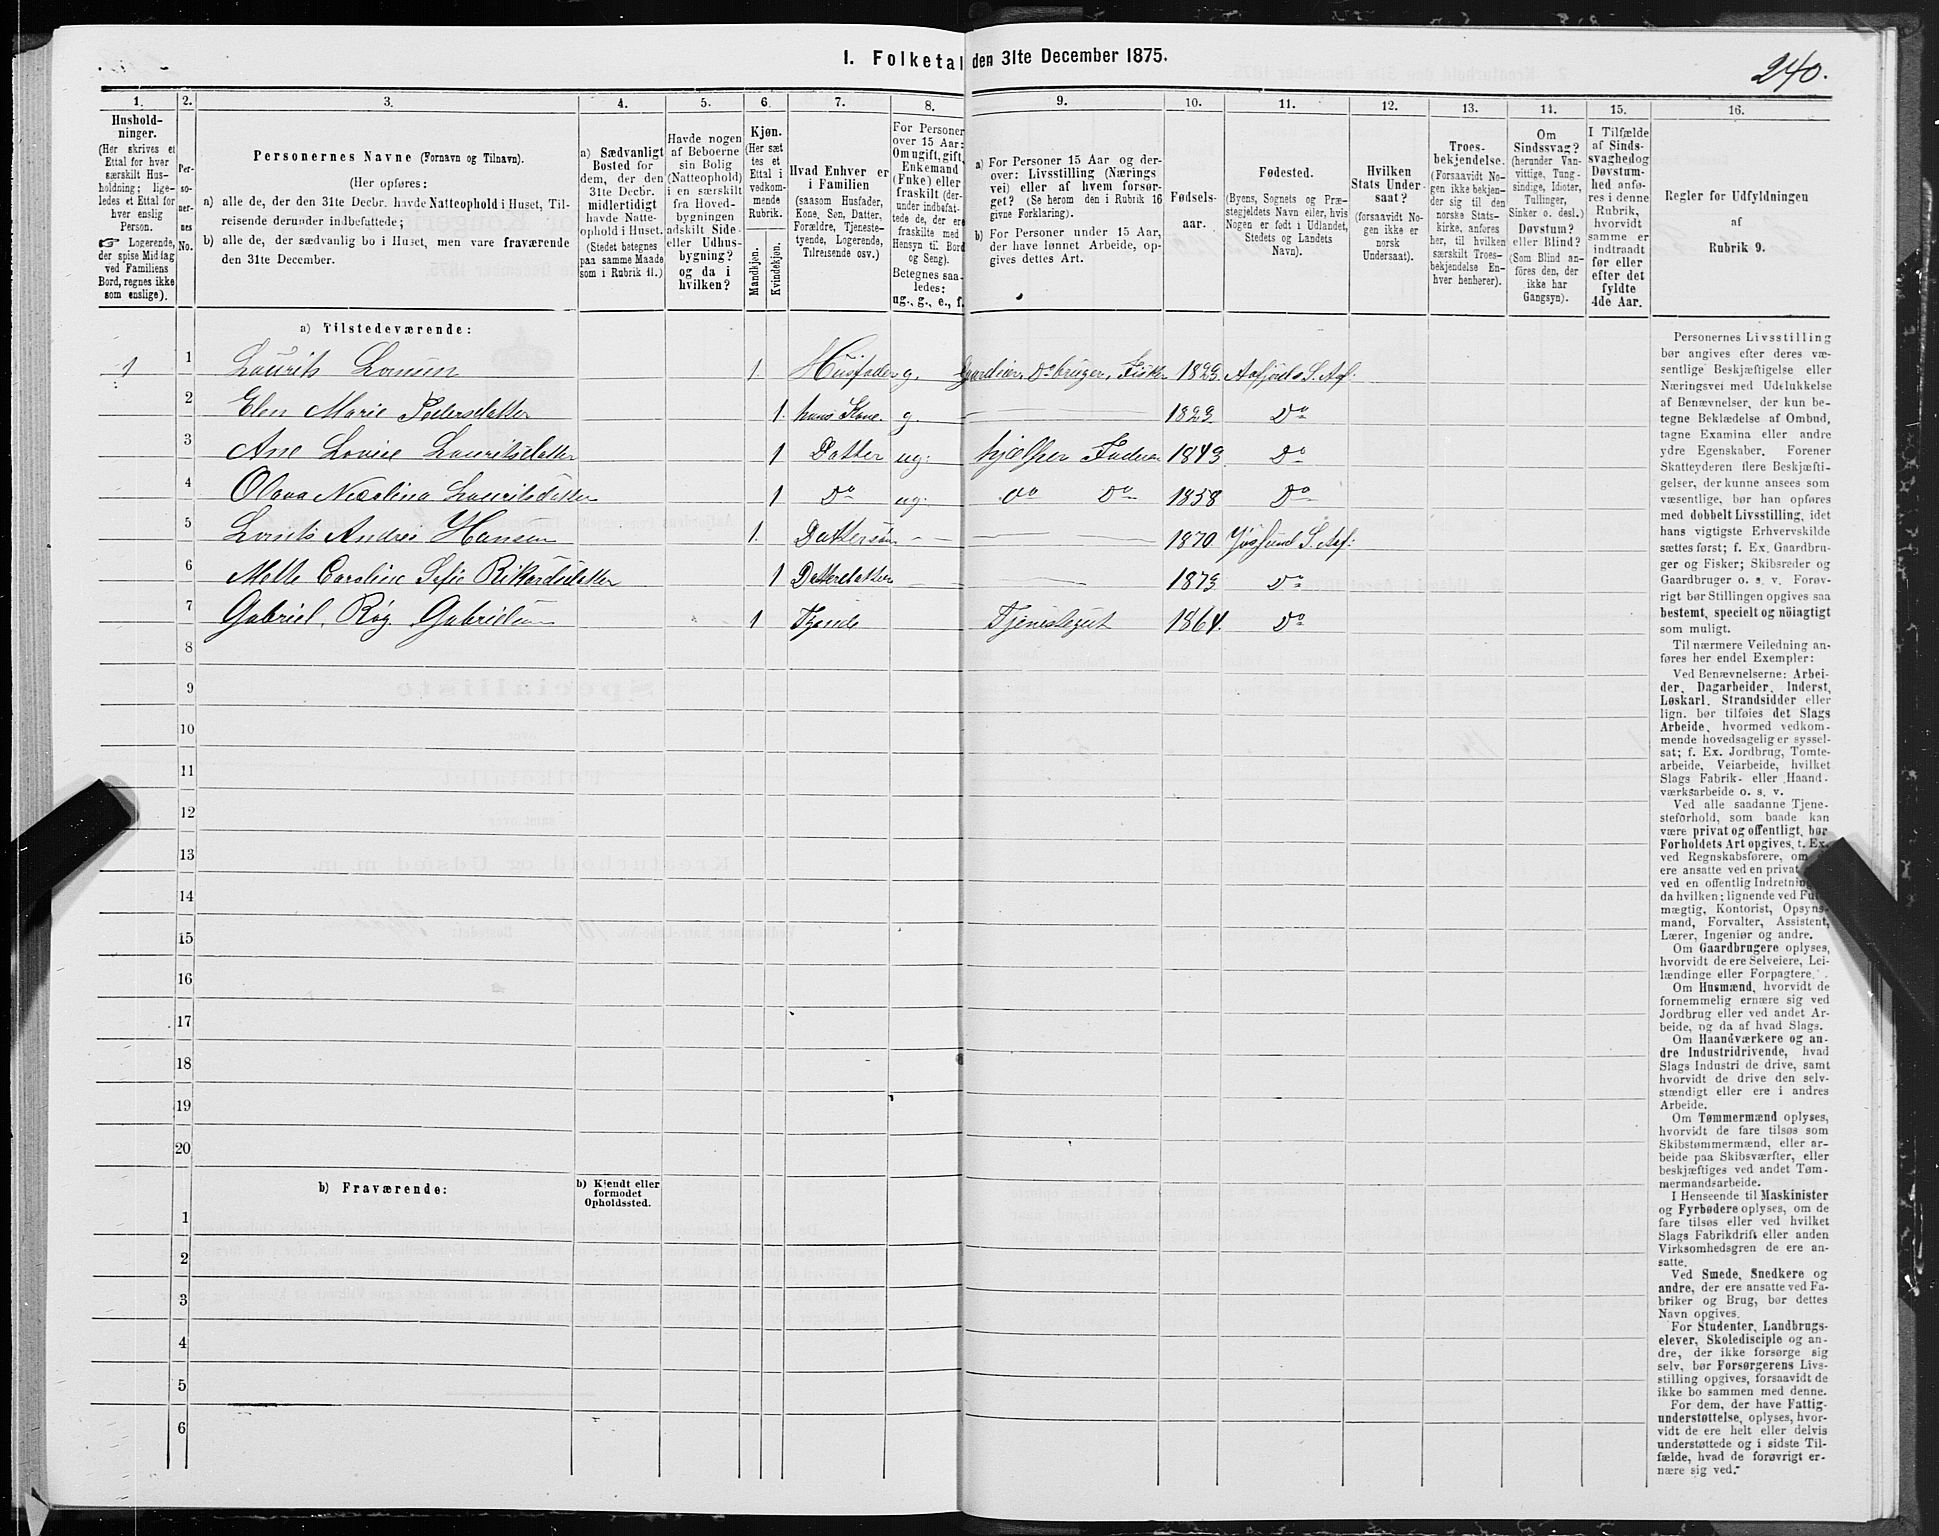 I. Folketal den 31te December 1875.
240.
1.
2.
3.
4.
5.
6.
7.
8.
9.
10.
11.
12.
13.
14.
15.
16.
Hushold-
ninger.
(Her skrives et
Ettal for hver
særskilt Hus-
holdning; lige-
ledes et Ettal for
hver enslig
Person.
☞ Logerende,
der spise Middag
ved Familiens
Bord, regnes ikke
som enslige).
Per-
so-
ner-
nes
No.
Personernes Navne (Fornavn og Tilnavn).
(Her opføres:
a) alle de, der den 31te Decbr. havde Natteophold i Huset, Til-
reisende derunder indbefattede;
b) alle de, der sædvanlig bo i Huset, men vare fraværende
den 31te December.
a) Sædvanligt
Bosted for
dem, der den
31te Decbr.
midlertidigt
havde Natte-
ophold i Huset.
(Stedet betegnes
paa samme Maade
som i Rubrik 11.)
Havde nogen
af Beboerne
sin Bolig
(Natteophold)
i en særskilt
fra Hoved-
bygningen
adskilt Side-
eller Udhus-
bygning?
og da i
hvilken?
Kjøn.
(Her sæt-
tes et
Ettal i
vedkom-
mende
Rubrik.
Mandkjøn.
Kvindekjøn.
Hvad Enhver er
i Familien
(saasom Husfader,
Kone, Søn, Datter,
Forældre, Tjeneste-
tyende, Logerende,
Tilreisende osv.)
For Personer
over 15 Aar:
Om ugift, gift,
Enkemand
(Enke) eller
fraskilt (der-
under indbefat-
tede de, der ere
fraskilte med
Hensyn til Bord
og Seng).
Betegnes saa-
ledes:
ug., g., e., f.
a) For Personer 15 Aar og der-
over: Livsstilling (Nærings
vei) eller af hvem forsør-
get? (Se herom den i Rubrik 16
givne Forklaring).
b) For Personer under 15 Aar,
der have lønnet Arbeide, op-
gives dettes Art.
Fødsels-
aar.
Fødested.
(Byens, Sognets og Præ-
stegjeldets Navn eller, hvis
Nogen er født i Udlandet,
Stedets og Landets
Navn).
Hvilken
Stats Under-
saat?
(forsaavidt No-
gen ikke er
norsk
Undersaat).
Troes-
bekjendelse.
(Forsaavidt No-
gen ikke bekjen-
der sig til den
norske Stats-
kirke, anføres
her, til hvilken
særskilt Troes-
bekjendelse En-
hver henhører).
Om
Sindssvag?
(herunder Van-
vittige, Tung-
sindige, Idioter,
Tullinger,
Sinker o. desl.)
Døvstum?
eller Blind?
(Som Blind an-
føres den, der
ikke har
Gangsyn).
I Tilfælde
af Sinds-
svaghed og
Døvstum-
hed anfø-
res i denne
Rubrik,
hvorvidt
samme er
indtraadt
før eller
efter det
fyldte
4de Aar.
Regler for Udfyldningen
af
Rubrik 9.
a) Tilstedeværende:
1 1 Laurits Larsen 1. Husfader g. Gaardeier, Do bruger, Fisker 1823. Aafjords S. Aaf:
2 Elen Marie Pedersdatter 1. hans Kone. g. 1823. Do
3 Ane Lovise Lauritsdatter 1 Datter ug: hjælper Faderen 1849. Do
4 Olava Nicoline Lauritsdatter 1 Do ug: Do Do 1858 Do
5 Lorits Andreas Hansen 1. Dattersøn 1870 Jøssund S. Aaf:
6 Mette Caroline Sofie Rikardsdatter 1 Datterdatter 1873 Do
7 Gabriel Røg Gabrielsen 1 Tyende Tjenestegut 1864. Do
8
9
10
11
12
13
14
15
16
17
18
19
20
b) Fraværende:
b) Kjendt eller
formodet
Opholdssted.
1
2
3
4
5
6
Personernes Livsstilling
bør angives efter deres væ-
sentlige Beskjæftigelse eller
Næringsvei med Udelukkelse
af Benævnelser, der kun be-
tegne Beklædelse af Ombud,
tagne Examina eller andre
ydre Egenskaber. Forener
Skatteyderen flere Beskjæfti-
gelser, der kunne ansees som
væsentlige, bør han opføres
med dobbelt Livsstilling, idet
hans vigtigste Erhvervskilde
sættes først; f. Ex. Gaardbru-
ger og Fisker; Skibsreder og
Gaardbruger o. s. v. Forøv-
rigt bør Stillingen opgives saa
bestemt, specielt og nöiagtigt
som muligt.
Til nærmere Veiledning an-
føres her endel Exempler:
Ved Benævnelserne: Arbei-
der, Dagarbeider, Inderst,
Løskarl, Strandsidder eller
lign. bør tilføies det Slags
Arbeide, hvormed vedkom-
mende hovedsagelig er syssel-
sat; f. Ex. Jordbrug, Tomte-
arbeide, Veiarbeide, hvilket
Slags Fabrik- eller Haand-
værksarbeide o. s. v.
Ved alle saadanne Tjene-
steforhold, som baade kan
være privat og offentligt, bør
Forholdets Art opgives, t. Ex.
ved Regnskabsførere, om
ere ansatte ved en privat
ved en offentlig Indretning
da hvilken; lignende ved
mægtig, Kontorist, Opsyns-
mand, Forvalter, Assistent,
Lærer, Ingeniør og andre.
Om Gaardbrugere oplyses,
hvorvidt de ere Selveiere, Lei-
lændinge eller Forpagtere.
Om Husmænd, hvorvidt de
fornemmelig ernære sig ved
Jordbrug eller ved andet Ar-
beide, og da af hvad Slags.
Om Haandværkere og an-
dre Industridrivende, hvad
Slags Industri de drive, samt
hvorvidt de drive den selv-
stændigt eller ere i andres
Arbeide.
Om Tømmermænd oplyses,
hvorvidt de fare tilsøs som
Skibstømmermænd, eller ar-
beide paa Skibsværfter, eller
beskjæftiges ved andet Tøm-
mermandsarbeide.
I Henseende til Maskinister
og Fyrbødere oplyses, om de
fare tilsøs eller ved hvilket
Slags Fabrikdrift eller anden
Virksomhedsgren de ere an-
satte.
Ved Smede, Snedkere og
andre, der ere ansatte ved Fa-
briker og Brug, bør dettes
Navn opgives.
For Studenter, Landbrugs-
elever, Skoledisciple og an-
dre, der ikke forsørge sig
selv, bør Forsørgerens Livs-
stilling opgives, forsaavidt de
ikke bo sammen med denne.
For dem, der have Fattig-
understøttelse, oplyses, hvor-
vidt de ere helt eller delvis
understøttede og i sidste Til-
fælde, hvad de forøvrigt er-
nære sig ved.